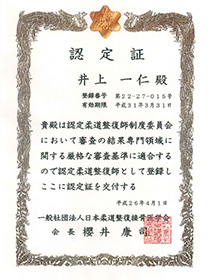 認定証
井上 一仁 殿
登録番号 第22-27-015号
有効期限 平成31年3月31日
貴殿は認定柔道整復師制度委員会
において審査の結果専門領域に
関する厳格な審査基準に適合する
ので認定柔道整復師として登録し
ここに認定証を交付する
平成26年4月1日
一般社団法人日本柔道整復接骨医学会
会長 櫻井 康司